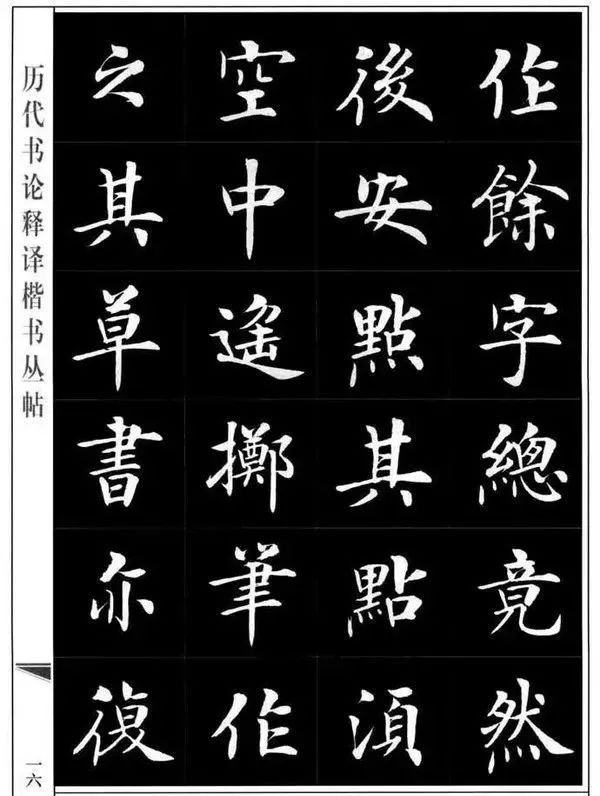 作餘字總竟然
後安點其點湏
空中遙擲筆作
之其草書亦復
历代书论释译楷书丛帖
一六